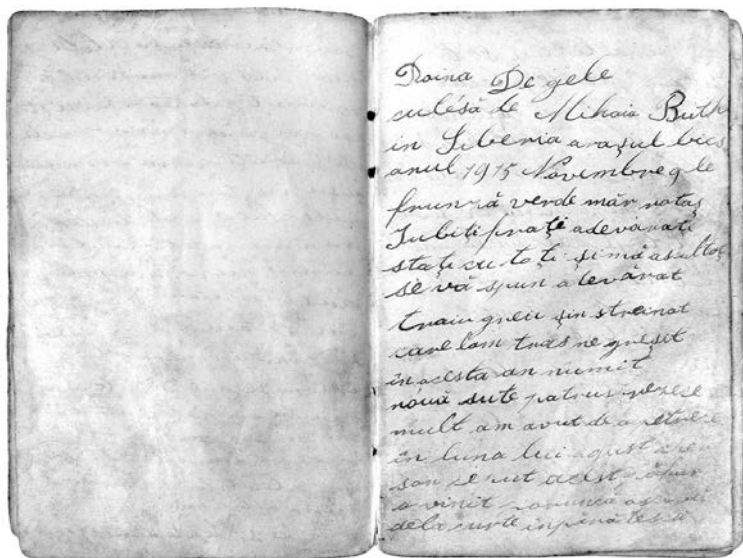 Doina De gele
culésă de Mihaia Buth
in Siberia arașul
anul 1915 Novembre 9 le
frunză verde măr rotaș
Iubiți frați adevărați
stați cu toți și mă ascultaț
se vă spun adevărat
traiu greu șin streinat
care lam tras ne greșit
in acesta an numit
nouă sute patrus
mult am avut de a petrece
in luna lui agust
san acest
a vinit porunca
dela curte inpărătes